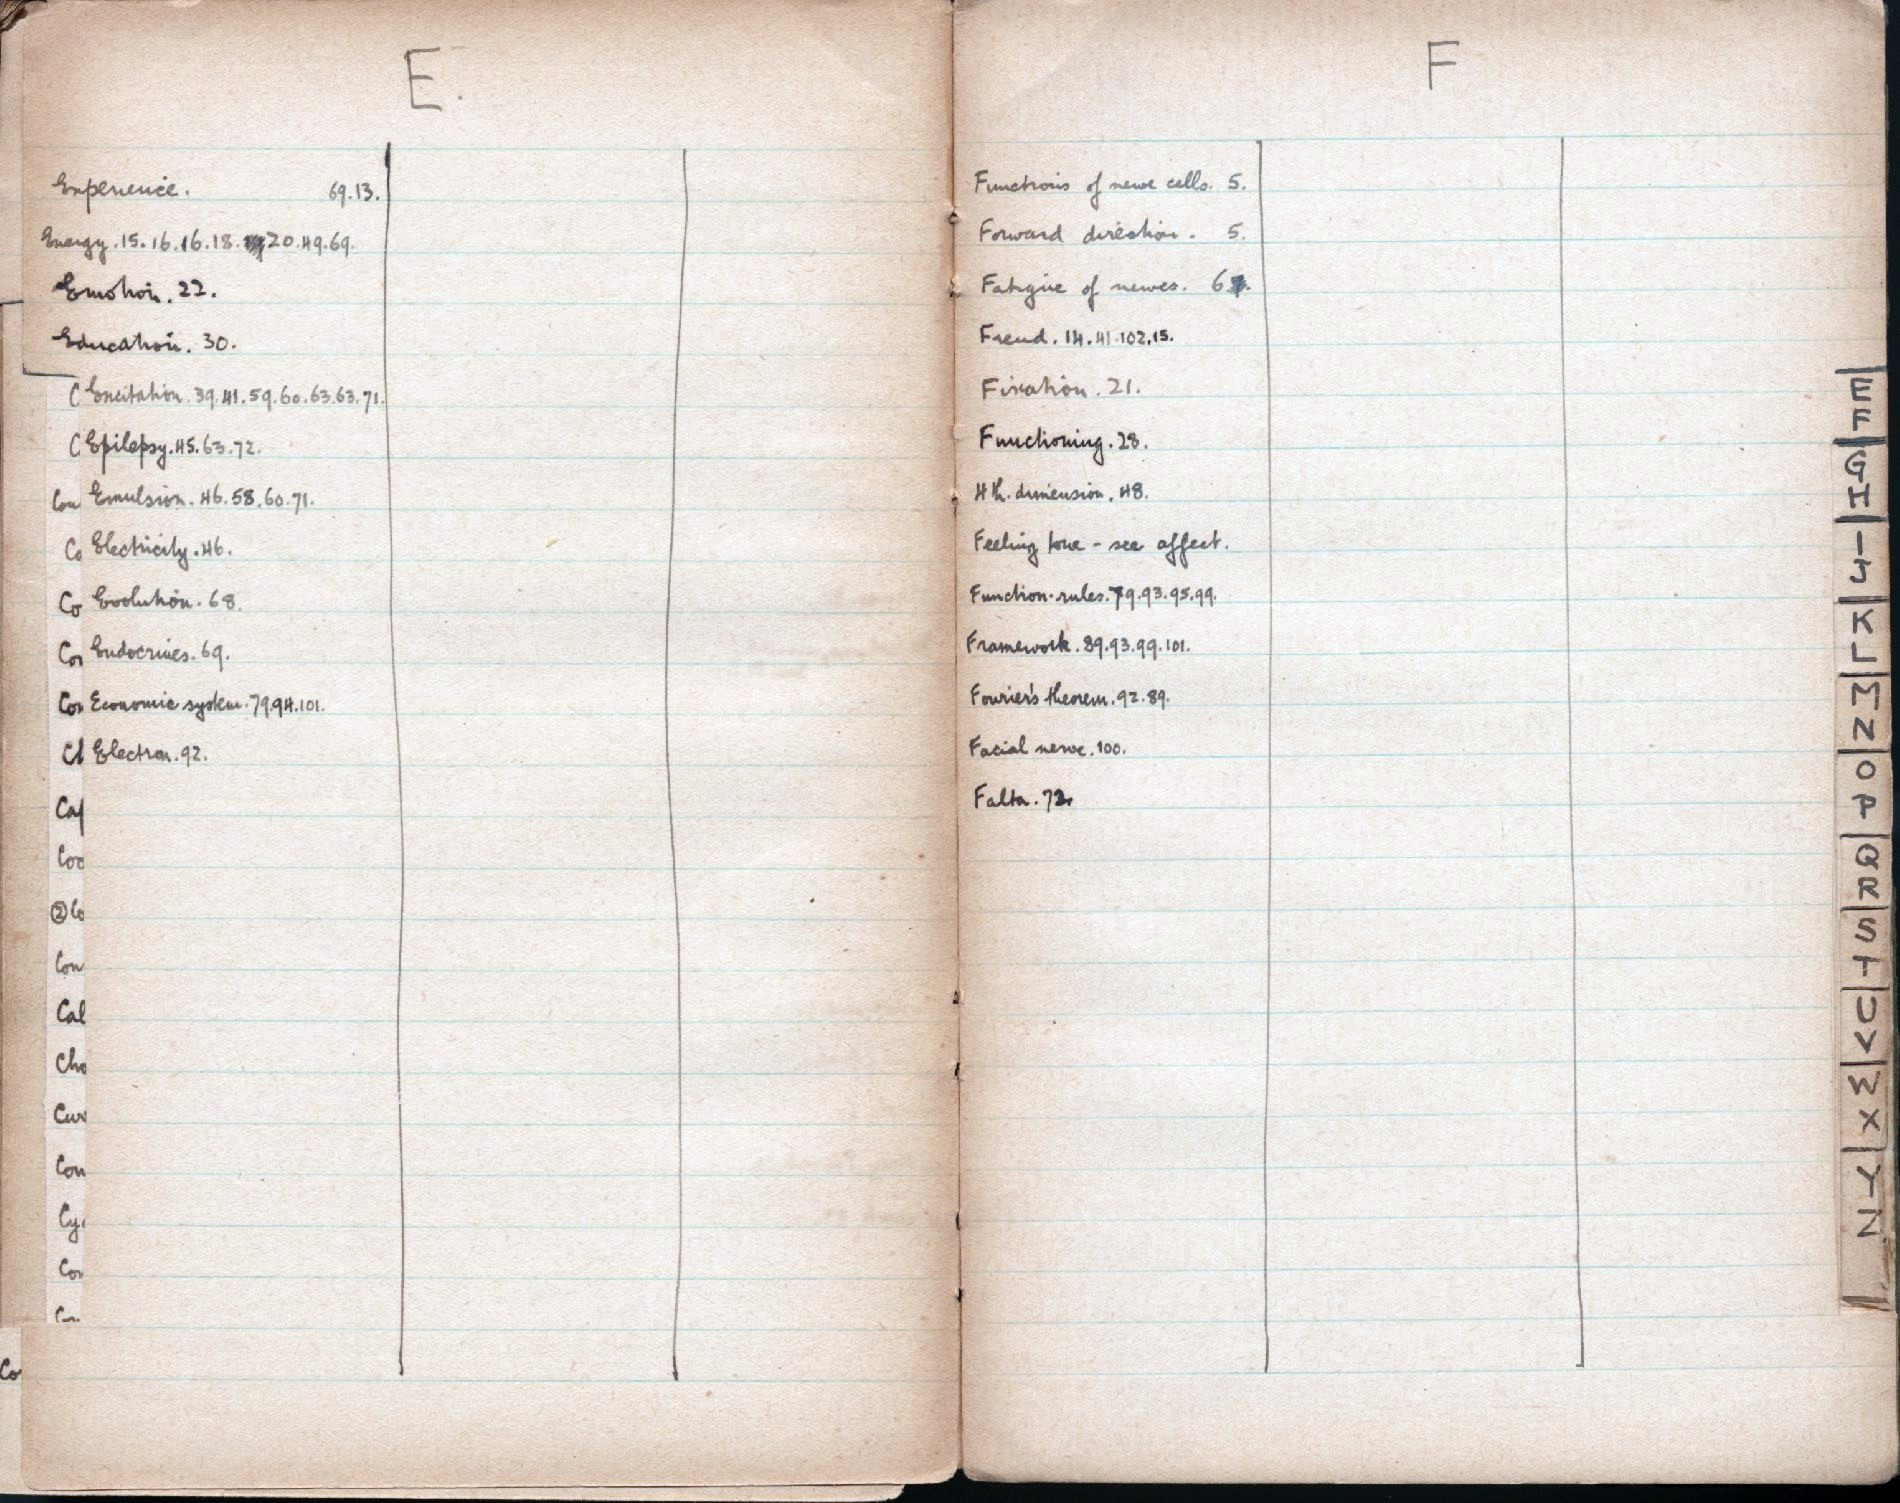 E.
Experience. 69.13.
Energy. 15. 16. 16. 18. 20. 49. 69.
Emotion. 22.
Education. 30.
C Excitation. 39. 41. 59. 60. 63. 63. 71.
C Epilepsy. 45. 63. 72.
Con Emulsion. 46. 58. 60. 71.
Co Electricity. 46.
Co Evolution. 68.
Con Endocrines. 69.
Con Economic system. 79.94.101.
Ch Electron. 92.
Cap
Coo
② Co
Con
Cal
Cho
Cur
Con
Cy
Con
Co
F
Functions of nerve cells. 5.
Forward direction. 5.
Fatigue of nerves. 6.
Freud. 14. 41. 102. 15.
Fixation. 21.
Functioning. 28.
4th. dimension. 48.
Feeling tone - see affect.
Function-rules. 79.93.95.99.
Framework. 89.93.99.101.
Fourier's theorem. 92.89.
Facial nerve. 100.
Falta. 72.
E
F
G
H
I
J
K
L
M
N
O
P
Q
R
S
T
U
V
W
X
Y
Z